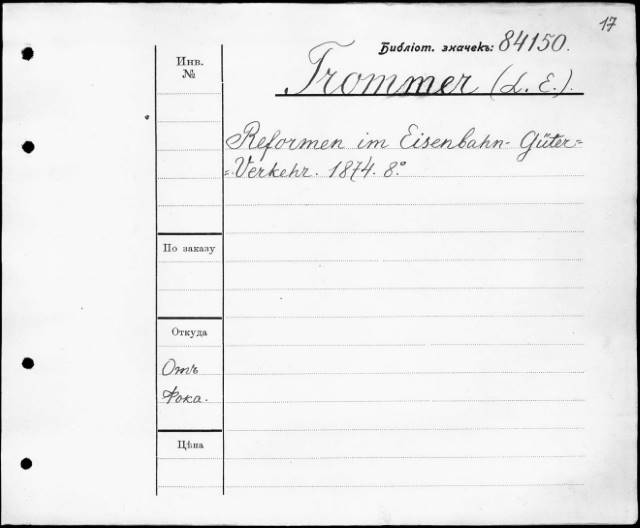 17
Библіот. значекъ: 84150.
Инв.
№
Trommer (L. E.).
Reformen im Eisenbahn- Güter=
=Verkehr. 1874. 8°
По заказу
Откуда
Отъ
Фока.
Цѣна